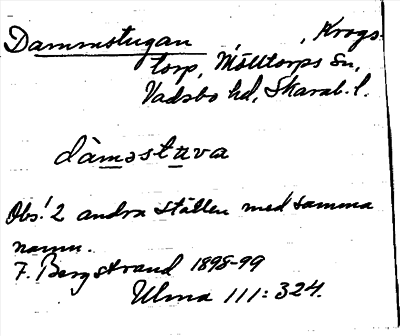 Dammstugan, Krogs-
torp, Mölltorps Sn,
Vadsbo hd, Skarab. l.
dàməstuva
Obs! 2 andra ställen med samma
namn.
F. Bergstrand 1898-99
Ulma 111: 324.